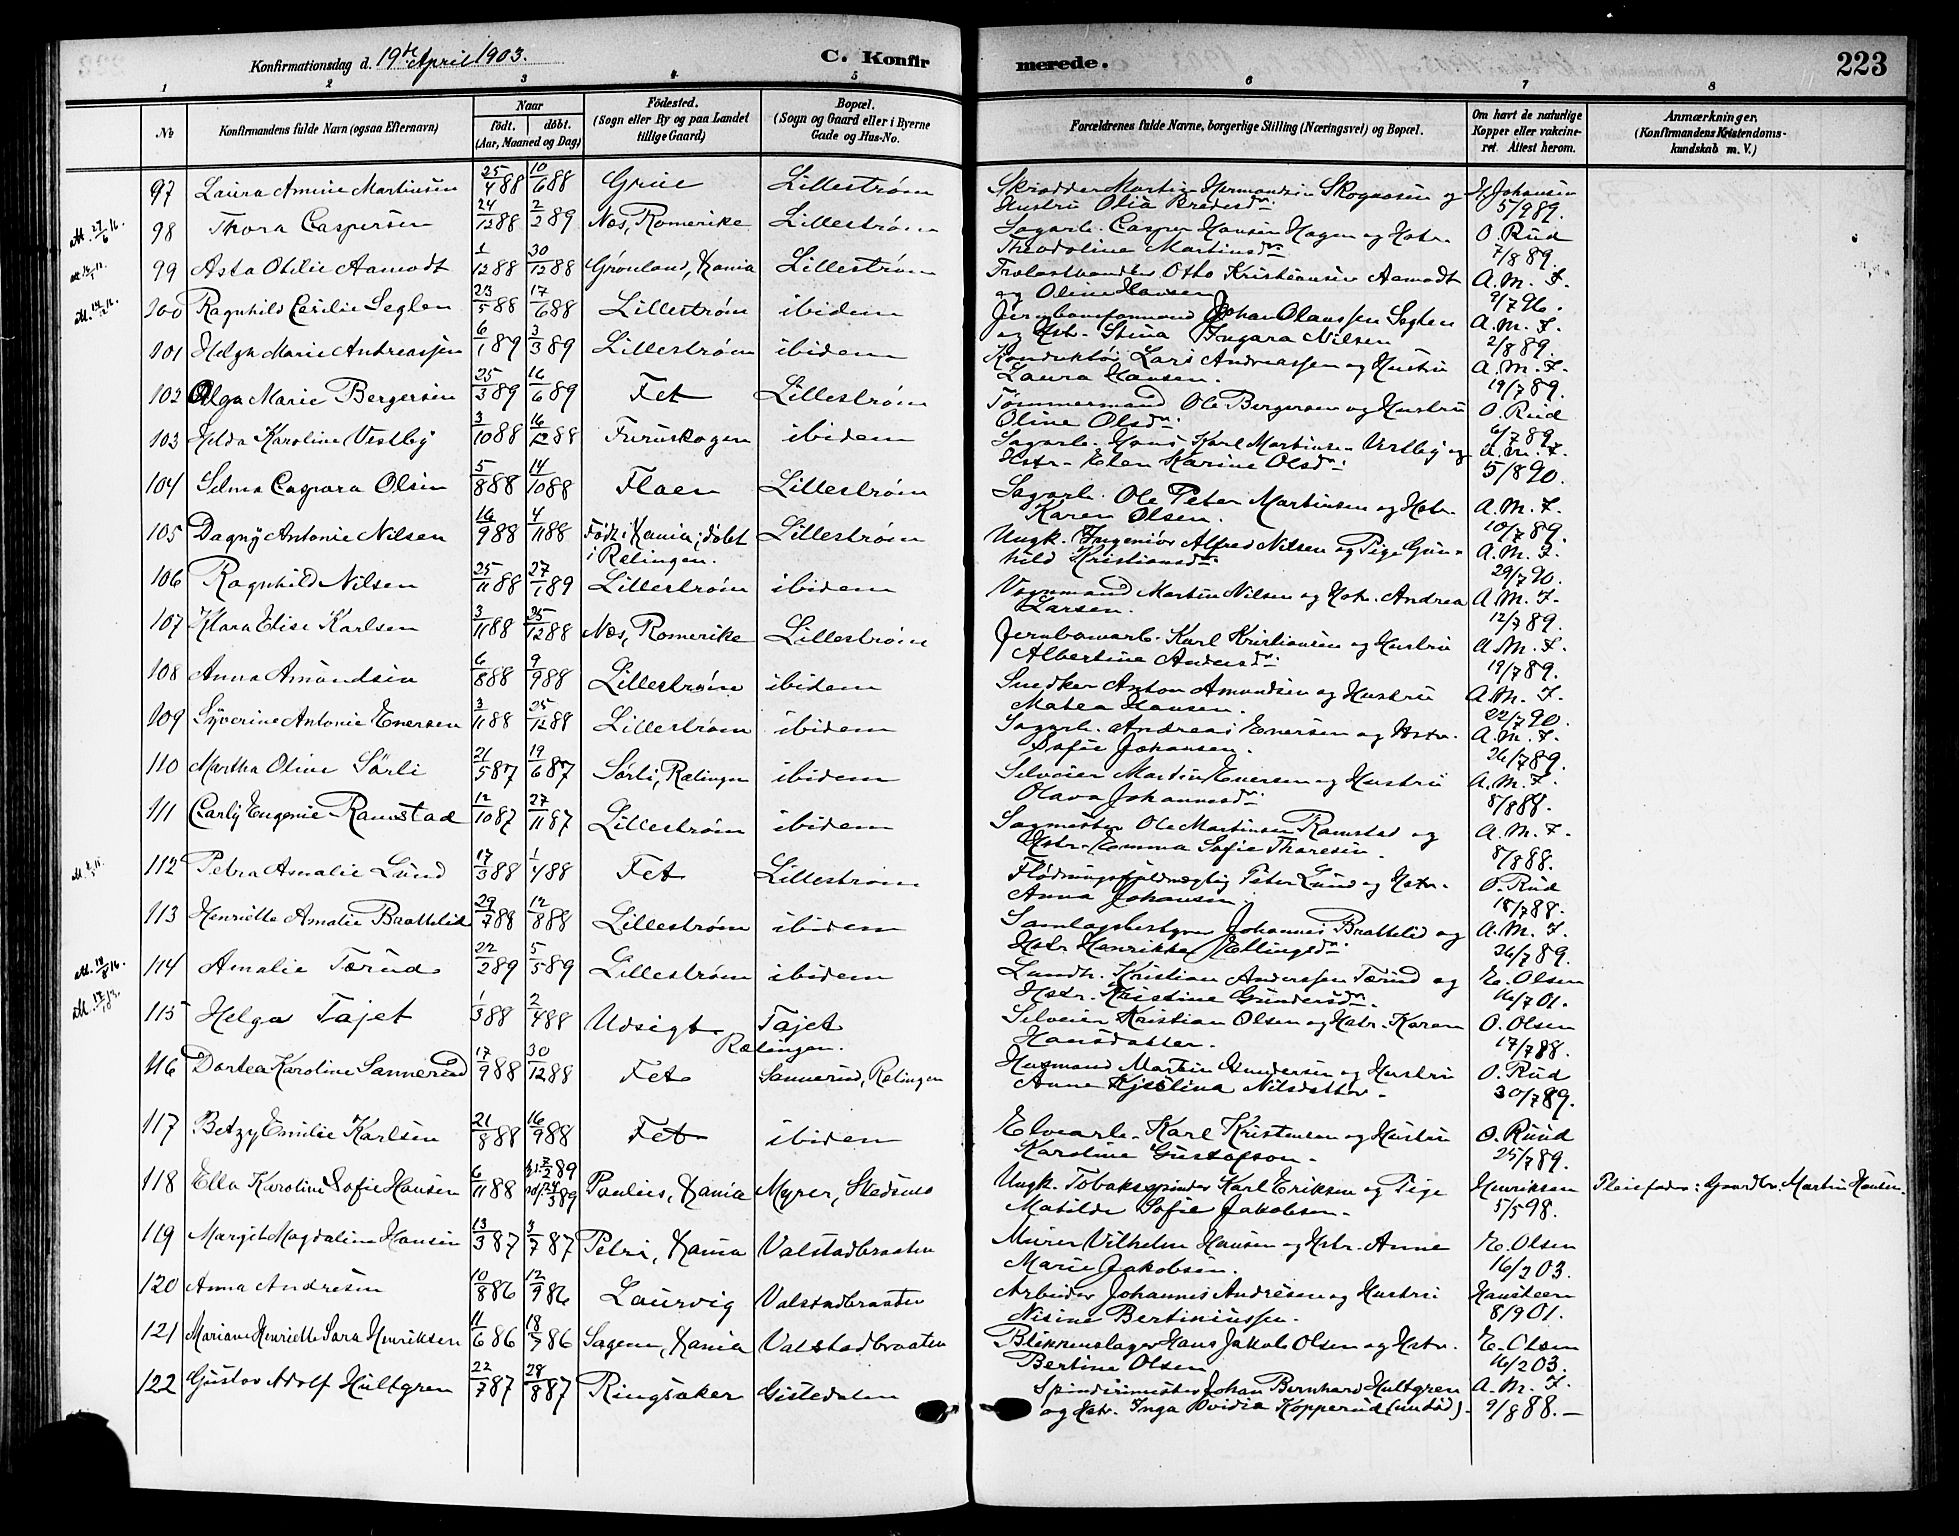 Konfirmationsdag d. 19de April 1903.
C. Konfirmerede.
223
1 2 3 4 5 6 7 8
No
Konfirmandens fulde Navn (ogsaa Efternavn)
Naar
født. døbt.
(Aar, Maaned og Dag)
Fødested.
(Sogn eller By og paa Landet
tillige Gaard)
Bopæl.
(Sogn og Gaard eller i Byerne
Gade og Hus-No.
Forældrenes fulde Navne, borgerlige Stilling (Næringsvei) og Bopæl.
Om havt de naturlige
Kopper eller vakcineret.
Attest herom.
Anmærkninger.
(Konfirmandens Kristendomskundskab
m. V.)
97 Laura Amine Martinsen 25/4 88 10/6 88 Grue Lillestrøm Skrædder Martin Hermandsen Skogaasen og H. Johansen
Hustru Olia Bredesdr. 5/9 89.
98 Thora Caspersen 24/12 88 2/2 89 Næs, Romerike Lillestrøm Sagarb. Casper Hansen Hagen og Hstr. O. Rud
Theodoline Martinsdr. 7/8 89.
99 Asta Otilie Aamodt 1/12 88 30/12 88 Grønland, Xania Lillestrøm Otto Kristiansen Aamodt A. M. F.
og Oline Hansen 9/7 96.
100 Ragnhild Cecilie Seglen 23/5 88 17/6 88 Lillestrøm ibidem Jernbaneformand Johan Olaussen Seglen A. M. F.
og Hstr. Stina Ingara Nilsen 2/8 89.
101 Helga Marie Andreassen 6/1 89 3/3 89 Lillestrøm ibidem Konduktør Lars Andreassen og Hustru A. M. F.
Laura Hansen. 19/7 89.
102 Olga Marie Bergersen 25/3 89 16/6 89 Fet Lillestrøm Tømmermand Ole Bergersen og Hustru O. Rud
Oline Olsdr. 6/7 89.
103 Hilda Karoline Vestby 3/10 88 16/12 88 Furuskogen ibidem Sagarb. Hans Karl Martinsen Vestby og A. M. F.
Hstr. Elen Karine Olsdr. 5/8 90.
104 Selma Caspara Olsen 5/8 88 14/10 88 Flaen Lillestrøm Sagarb. Ole Peter Martinsen og Hstr. A. M. F.
Karen Olsen. 10/7 89.
105 Dagny Antonie Nilsen 16/9 88 4/11 88 Født i Xania, døbt Lillestrøm Ungk. Ingeniør Alfred Nilsen og Pige Gun- A. M. F.
i Rælingen. hild Kristiansdr. 29/7 90.
106 Ragnhild Nilsen 25/11 88 27/1 89 Lillestrøm ibidem Vognmand Martin Nilsen og Hstr. Andrea A. M. F.
Larsen. 12/7 89.
107 Klara Elise Karlsen 3/11 88 25/12 88 Næs, Romerike Lillestrøm Jernbanearb. Karl Kristiansen og Hustru A. M. F.
Albertine Andersdr. 19/7 89.
108 Anna Amundsen 6/8 88 9/9 88 Lillestrøm ibidem Snedker Anton Amundsen og Hustru A. M. F.
Matea Hansen. 22/7 90.
109 Syverine Antonie Enersen 3/11 88 25/12 88 Lillestrøm ibidem Sagarb. Andreas Enersen og Hstr. A. M. F.
Sofie Johansen. 26/7 89.
110 Martha Oline Sørli 21/5 87 19/6 87 Sørli, Rælingen ibidem Selveier Martin Enersen og Hustru A. M. F.
Olava Johannesdr. 8/8 88.
111 Carly Eugenie Ramstad 12/10 87 27/11 87 Lillestrøm ibidem Sagmester Ole Martinsen Ramstad og A. M. F.
Hstr. Emma Sofie Thoresen. 8/8 88.
112 Petra Amalie Lund 17/3 88 1/4 88 Fet Lillestrøm Peter Lund og Hstr. O. Rud
Anna Johansen. 18/7 88.
113 Henriette Amalie Brattelid 29/7 88 12/8 88 Lillestrøm ibidem Samlagsbestyrer Johannes Brattelid og A. M. F.
Hstr. Henrikke Ellingsdr. 26/7 89.
114 Amalie Tærud 22/2 89 5/5 89 Lillestrøm ibidem Landh. Kristian Anderssen Tærud og E. Olsen
Hstr. Kristine Gundersdr. 16/7 01.
115 Helga Tajet 1/3 88 2/4 88 Udsigt Tajet Selveier Kristian Olsen og Hstr. Karen O. Olsen
Rælingen. Hansdatter. 17/7 88.
116 Dortea Karoline Sannerud 17/9 88 30/12 88 Fet Sannerud, Rælingen Husmand Martin Gundersen og Hustru O. Rud
Anne Kjestina Nilsdatter. 30/7 89.
117 Betzy Emilie Karlsen 21/8 88 16/9 88 Fet ibidem Elvearb. Karl Kristensen og Hustru O. Ruud
Karoline Gustafson. 25/7 89.
118 Ella Karoline Sofie Hansen 6/11 88 7/2 89 24/3 89 Paulus, Xania Myrer, Stedsnes Ungk. Tobaksspinder Karl Eriksen og Pige Henriksen Pleiefader: Gaardbr. Martin Hansen.
Matilde Sofie Jakobsen. 5/5 98.
119 Margit Magdaline Hansen 13/3 87 3/7 87 Petri, Xania Valstadbraaten Murer Vilhelm Hansen og Hstr. Anne E. Olsen
Marie Jakobsen. 16/2 03.
120 Anna Andresen 10/8 86 12/9 86 Laurvig Valstadbraaten Arbeider Johannes Andresen og Hustru Hansteen
Nisine Bertiniussen. 8/9 01.
121 Mariane Henriette Sara Henriksen 11/6 86 18/7 86 Sagene, Xania Valstadbraaten Blikkenslager Hans Jakob Olsen og Hstr. E. Olsen
Bertine Olsen 16/2 03.
122 Gustav Adolf Hultgren 22/7 87 28/8 87 Ringsaker Gistedalen Spinderimester Johan Bernhard Hultgren A. M. F.
og Hstr. Inga Ovidia Kopperud (undød). 9/8 88.